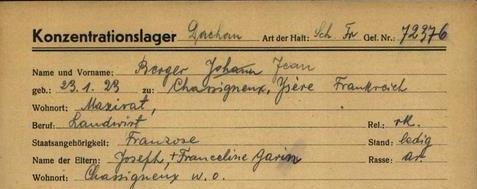 Konzentrationslager Dachau Art der Haft: Sch Fr Gef. Nr.: 72376
Name und Vorname: Berger Johann Jean
geb.: 23.1.23 zu: Chassigneux, Ysère Frankreich
Wohnort: Mazirat,
Beruf: Landwirt Rel.: rk.
Staatsangehörigkeit: Franzose Stand: ledig
Name der Eltern: Joseph, + Franceline Garin Rasse: ar.
Wohnort: Chassigneux w.o.